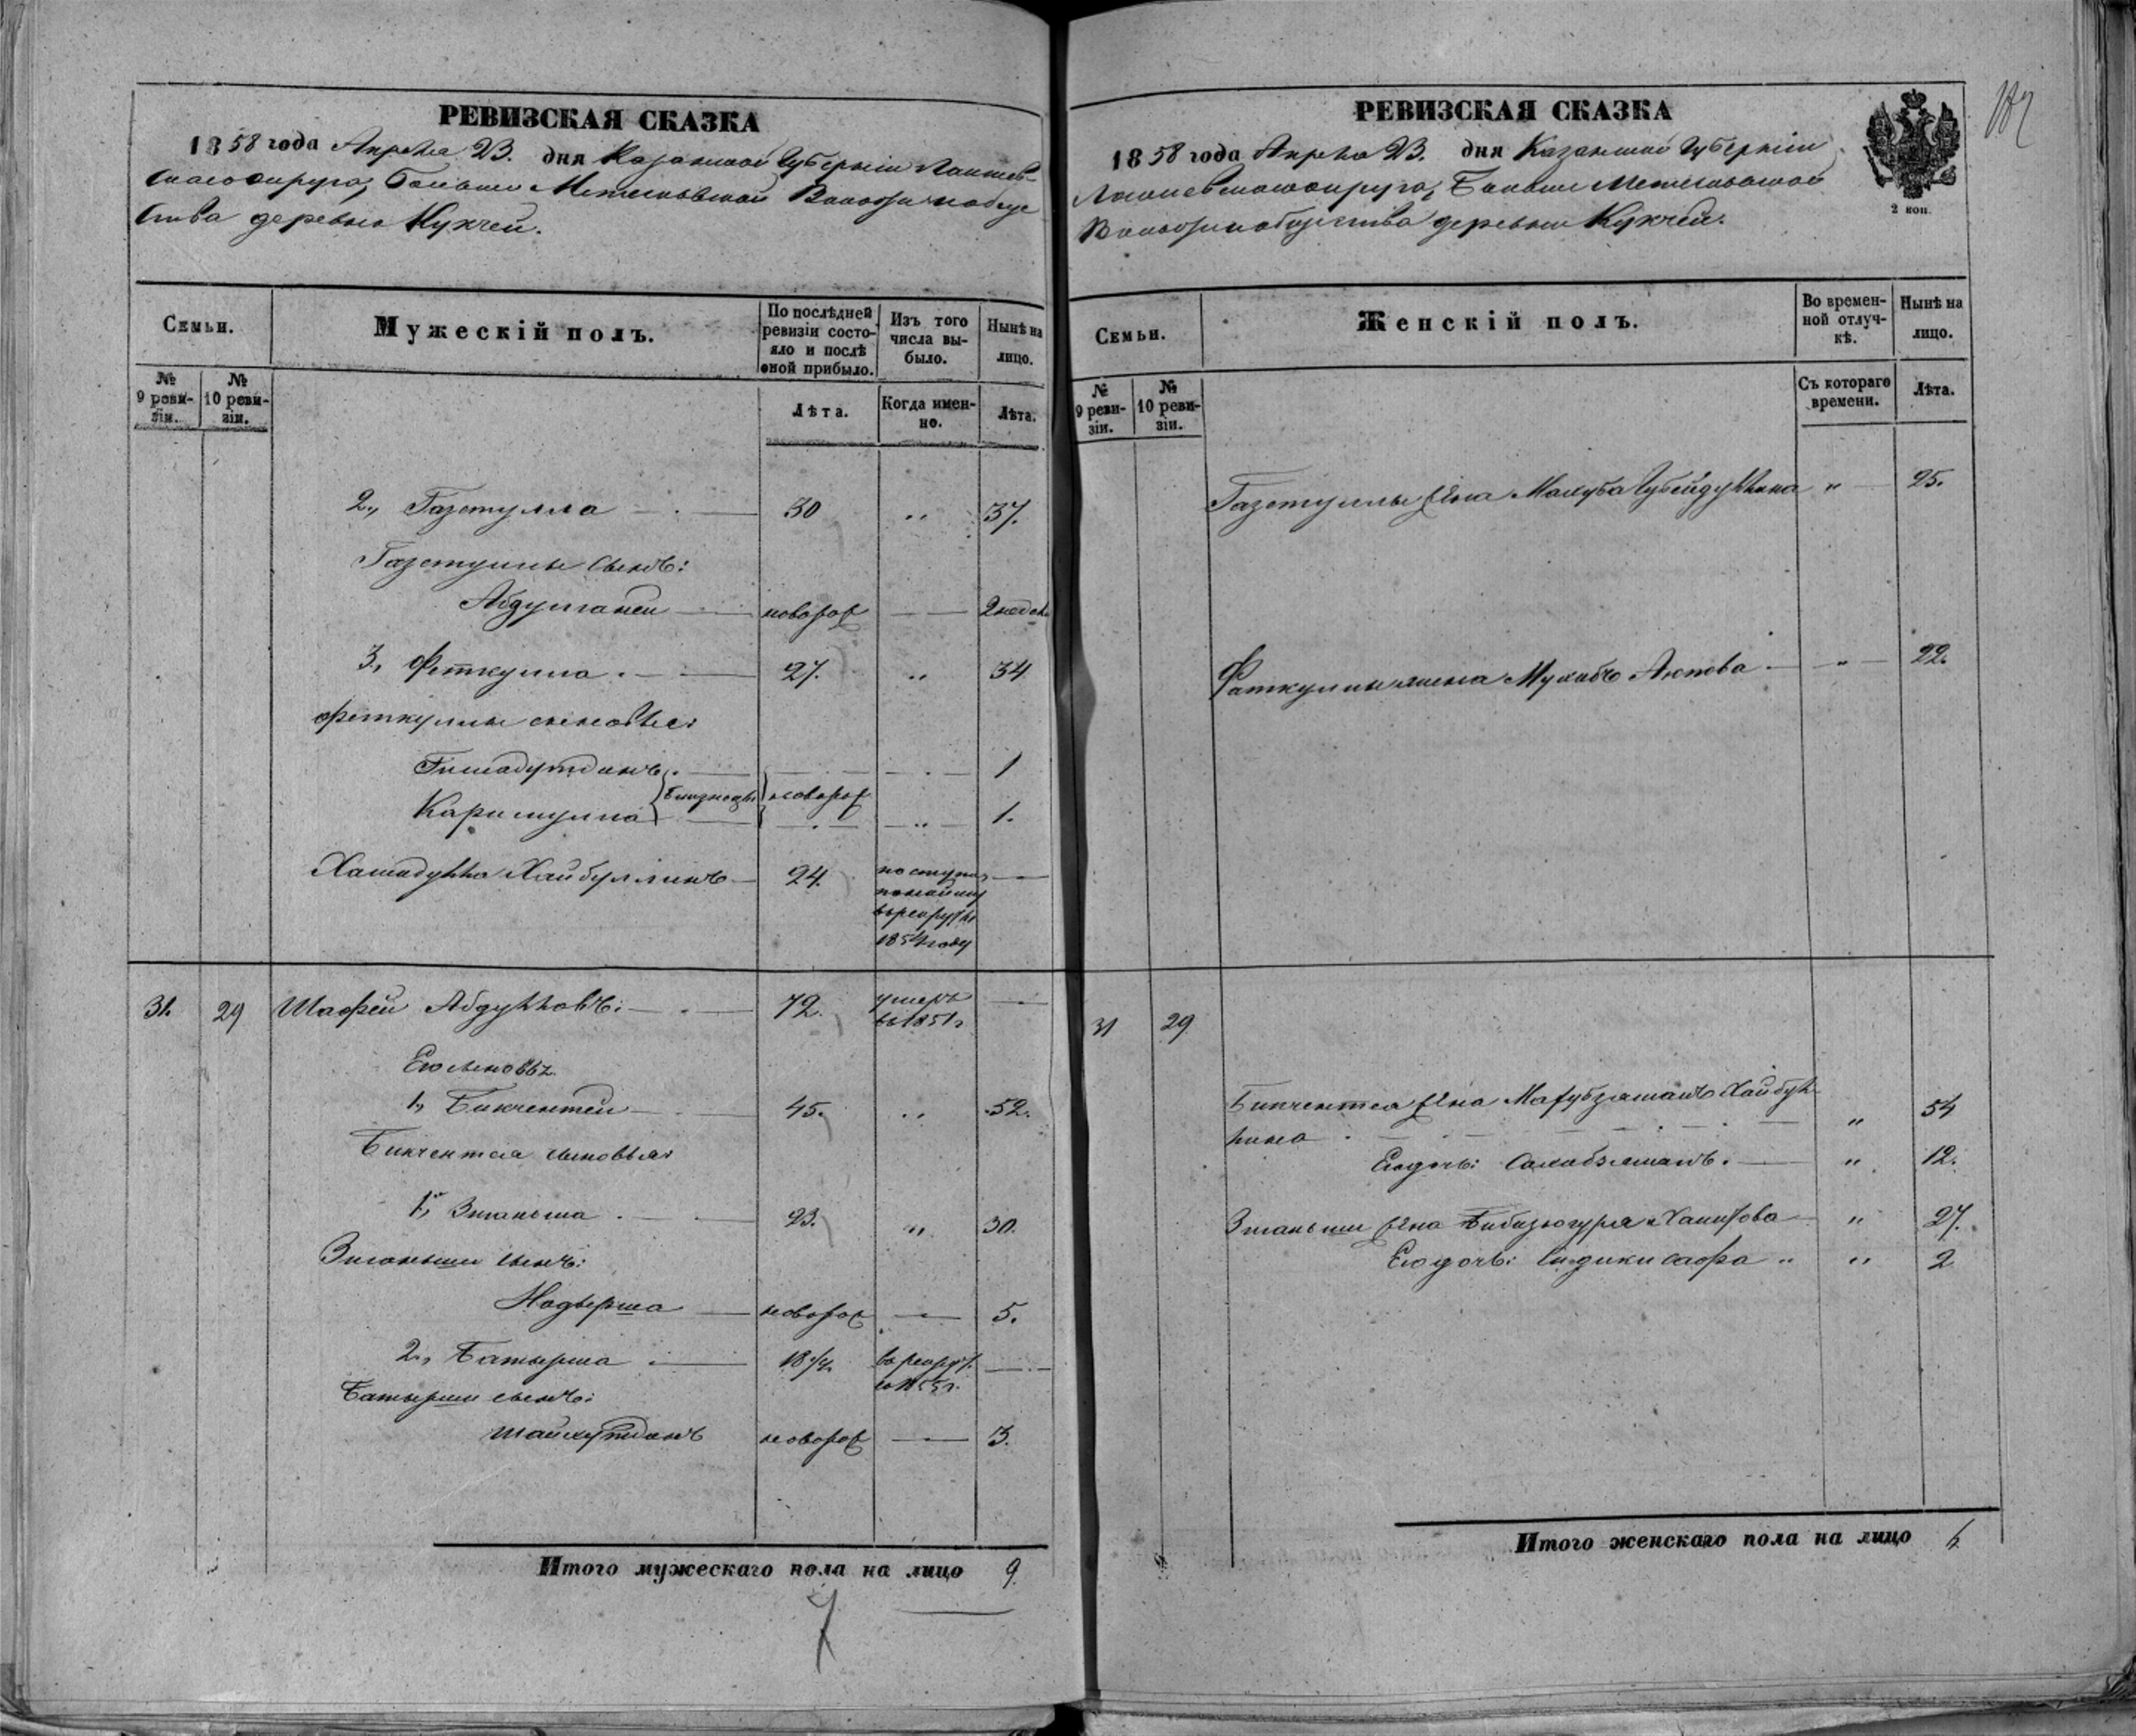 РЕВИЗСКАЯ СКАЗКА
1858 года Апреля 23. дня Казанской Губерніи Лаишев-
скаго округа, Больше Метесковской Волости и обще
ства деревни Кукчей.
Семьи.
Мужескій полъ.
По послѣдней ревизіи состояло и послѣ оной прибыло.
Изъ того числа выбыло.
Нынѣ на лицо.
№ 9 ревизіи.
№ 10 ревизіи.
Лѣта.
Когда именно.
Лѣта.
2., Газетулла 30 „ 37.
Газетуллы сынъ:
Абдулганей новорож 2 недел.
3., Феткулла 27. „ 34
Феткуллы сыновья:
Гимадутдинъ 1
близнецы новорож
Каримулла „ 1.
Хамидулла Хайбуллинъ 24. поступил
по найму
въ рекруты
1854 году
31. 29 Шафей Абдулловъ: 72. умеръ
въ 1851 г.
Его сыновья
1., Бикчентей 45. „ 52.
Бикчентея сыновья:
1., Зиганьша 23. „ 30.
Зиганьши сынъ:
Надырша новорож 5.
2., Батырша 18 1/2. въ рекрут.
съ 1855 г.
Батырши сынъ:
Шайхутдинъ новорож 3.
Итого мужескаго пола на лицо 9.
РЕВИЗСКАЯ СКАЗКА
1858 года Апреля 23. дня Казанской Губерніи
Лаишевскаго округа, Больше Метесковской
Волости и общества деревни Кукчей.
2 коп.
Семьи.
Женскій полъ.
Во временной отлучкѣ.
Нынѣ на лицо.
№ 9 ревизіи.
№ 10 ревизіи.
Съ котораго времени.
Лѣта.
Газетуллы жена Махуба Губейдуллина „ 25.
Фаткуллы жена Мухибъ Аюпова „ 22.
31 29
Бикчентея жена Магубзяманъ Хайбул
лина „ 54
Его дочь: Сахибзяманъ. „ 12.
Зиганьши жена Бибизюгуря Ханифова „ 27.
Его дочь: Сидики сафа „ „ 2
Итого женскаго пола на лицо 6.